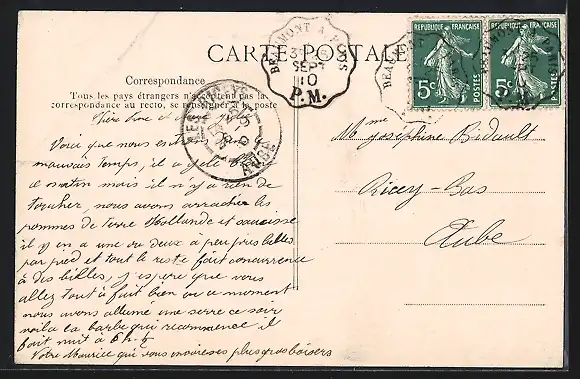 CARTE POSTALE
Correspondance
Tous les pays étrangers n'acceptent pas la
correspondance au recto, se renseigner à la poste
BEAUMONT A P S
SEPT
10
P.M.
REPUBLIQUE FRANÇAISE
5c
POSTES
REPUBLIQUE FRANÇAISE
5c
POSTES
BEAUMONT
AUBE
Mme Joséphine Bidault
Ricey-Bas
Aube
Voici que nous
mauvais temps, il a gelé
ce matin mais il n'y a rien de
toucher, nous avons arraché les
pommes de terre Hollande et saucisse
il y en a une ou deux à peu près belles
par pied et tout le reste fait concurrence
à des billes, j'espère que vous
allez tout à fait bien en ce moment
nous avons allumé une serre ce soir
voila la barbe qui recommence il
fait nuit à 6h ½
Votre Maurice qui vous